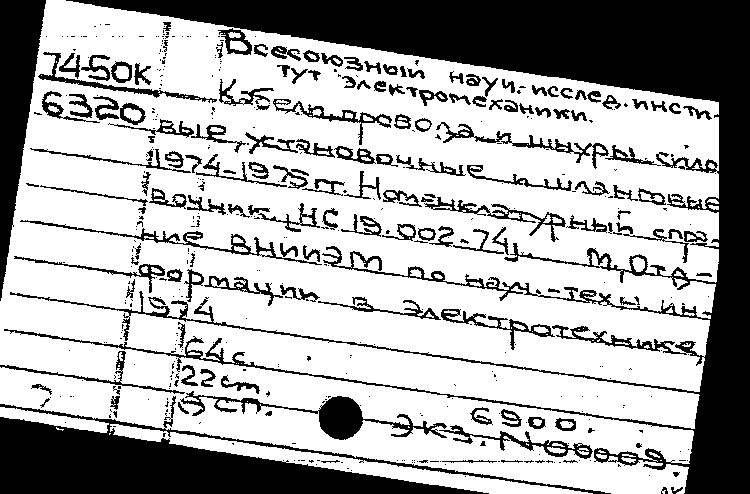 74-50К
6320
Всесоюзный науч.-исслед. инсти-
тут электромеханики.
Кабели, провода и шнуры сило-
вые, установочные и шланговые
1974-1975 гг. Номенклатурный спра-
вочник. [НС 19.002-74]. М., Отд-
ние ВНИИЭМ по науч.-техн. ин-
формации в электротехнике,
1974.
64 с.
22 cm.
Э СП.
6900.
Экз. N 00009.